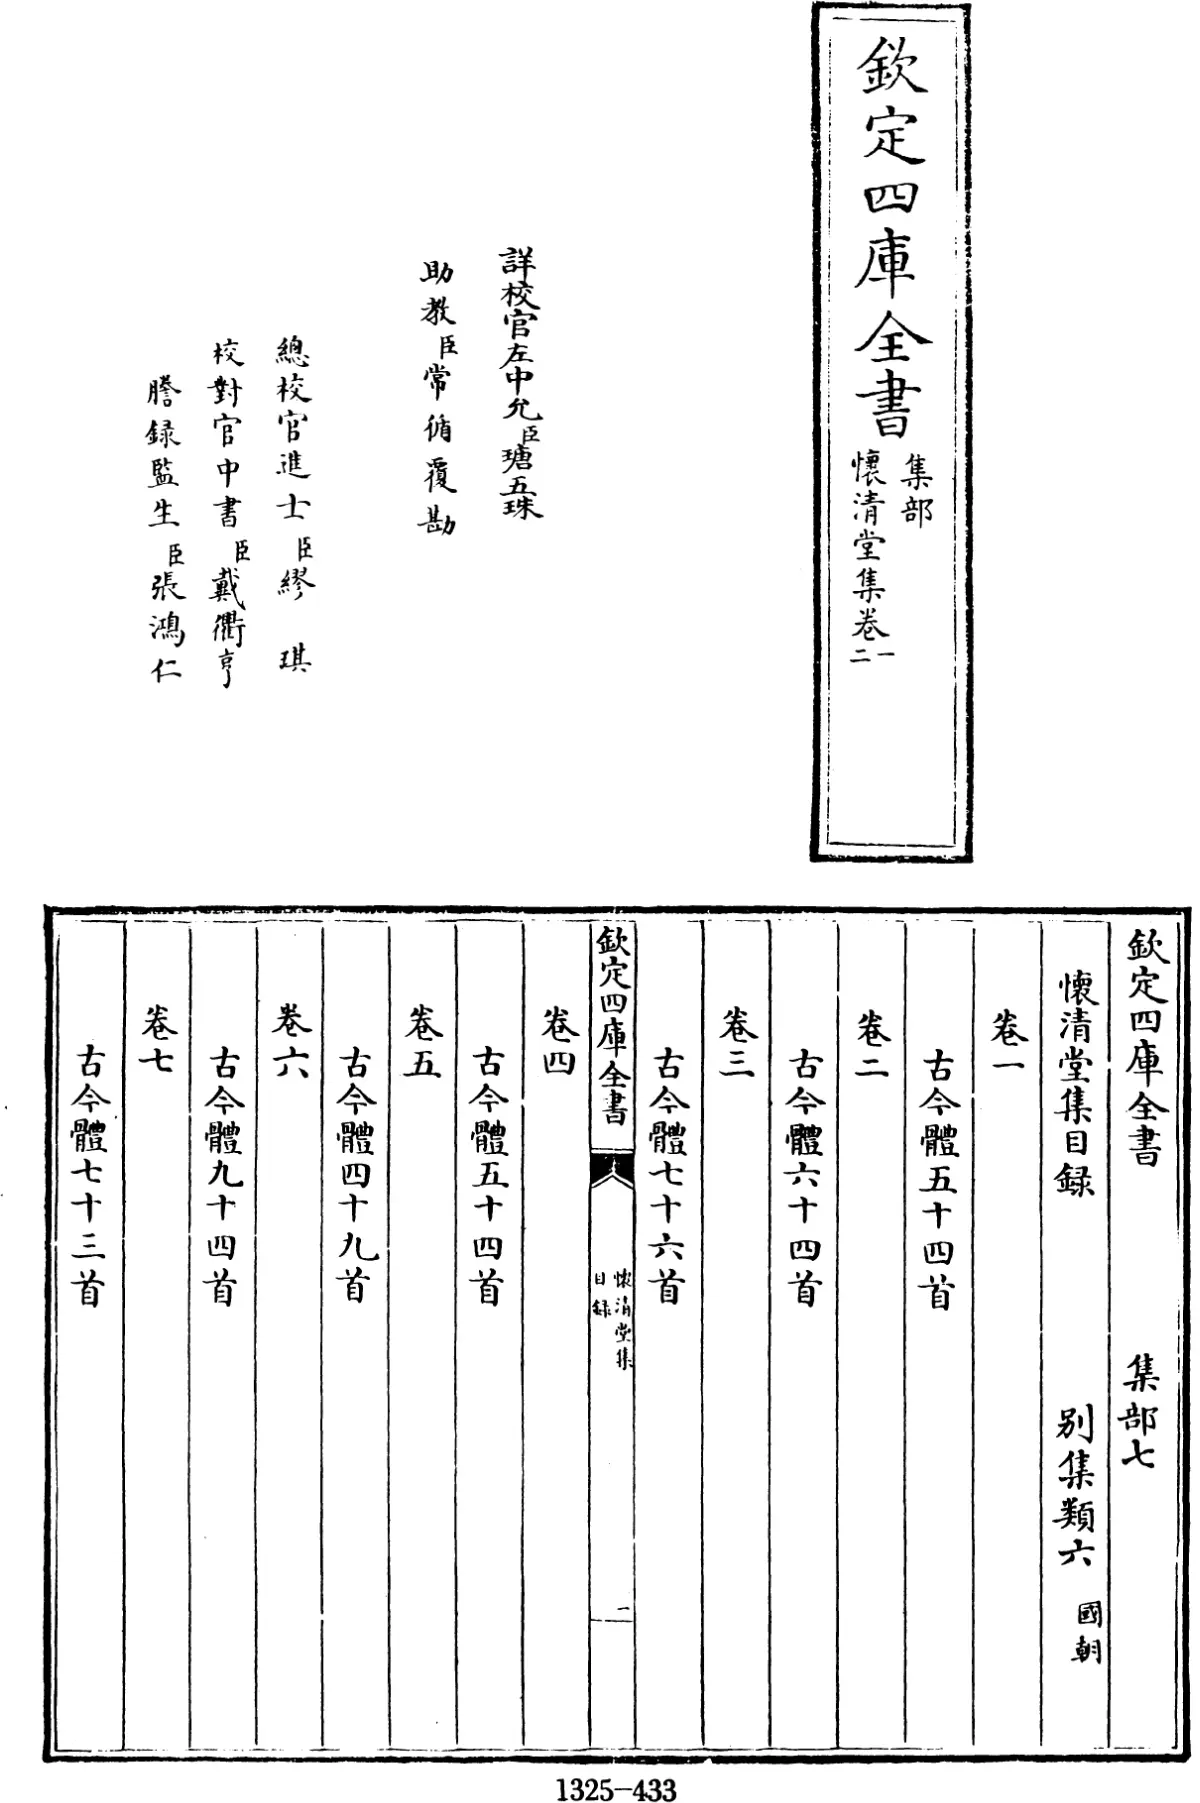 欽定四庫全書
集部
懷清堂集卷一二
詳校官左中允臣瑭五珠
助教臣常循覆勘
總校官進士臣繆琪
校對官中書臣戴衢亨
謄録監生臣張鴻仁
欽定四庫全書 集部七
懷清堂集目録 别集類六 國朝
卷一
古今體五十四首
卷二
古今體六十四首
卷三
古今體七十六首
欽定四庫全書
懷清堂集
目録
一
卷四
古今體五十四首
卷五
古今體四十九首
卷六
古今體九十四首
卷七
古今體七十三首
1325-433